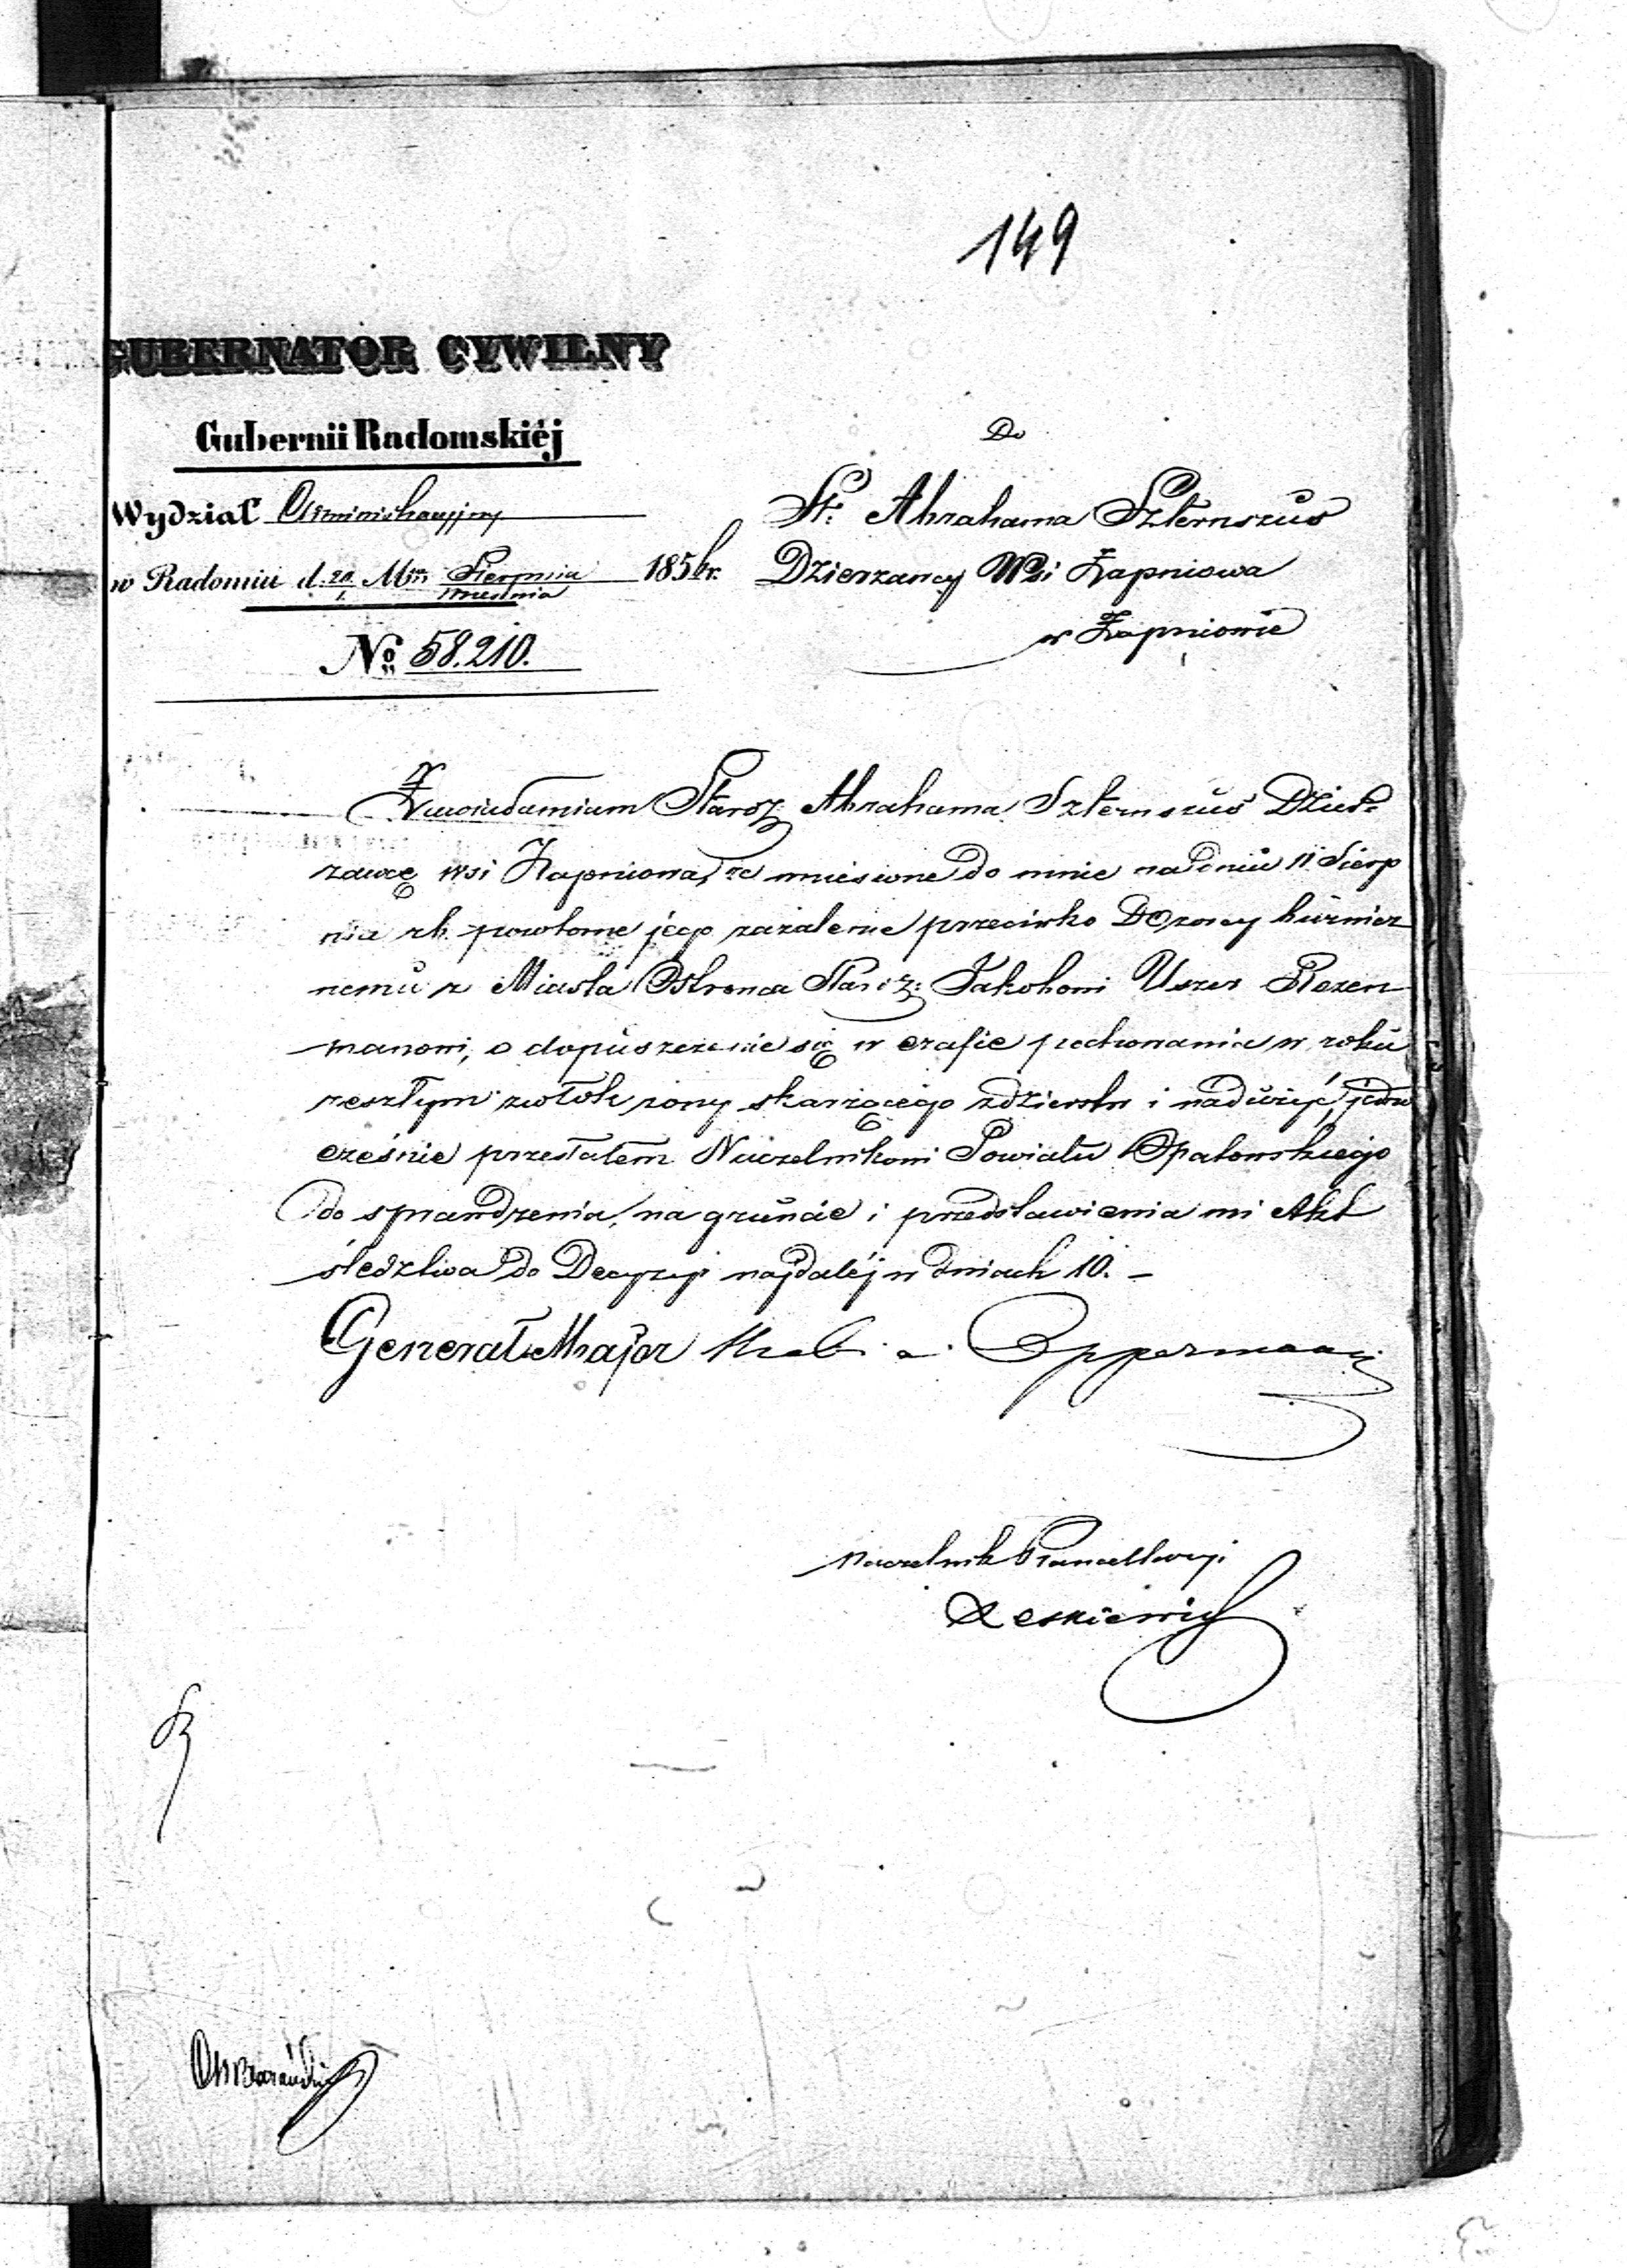 149
GUBERNATOR CYWILNY
Gubernii Radomskiéj
Wydział Administracyjny
w Radomiu d. 20/1 Mca Sierpnia/Września 1856 r.
No 58.210.
Do
St: Abrahama Szternszus
Dzierzawcy Wsi Łapniowa
w Łapniowie
Zawiadamiam Starsz: Abrahama Szternszus Dzier-
zawcę wsi Łapniowa, że wniesione do mnie na dniu 11 Sierp
nia rb. powtorne jego zazalenie przeciwko Dozorcy bużnicz
nemu z Miasta Ostrowca Starsz: Jakobowi Uszer Rozen
manowi, o dopuszczenie się w czasie pochowania w roku
zeszłym zwłok żony skarżącego zdzierstw i nadużyć, jedno
cześnie przesłałem Naczelnikowi Powiatu Opatowskiego
do sprawdzenia na gruncie i przedstawienia mi Akt
śledztwa do Decyzyi najdaléj w dniach 10. –
Generał Major Opperman
Naczelnik Kancellaryi